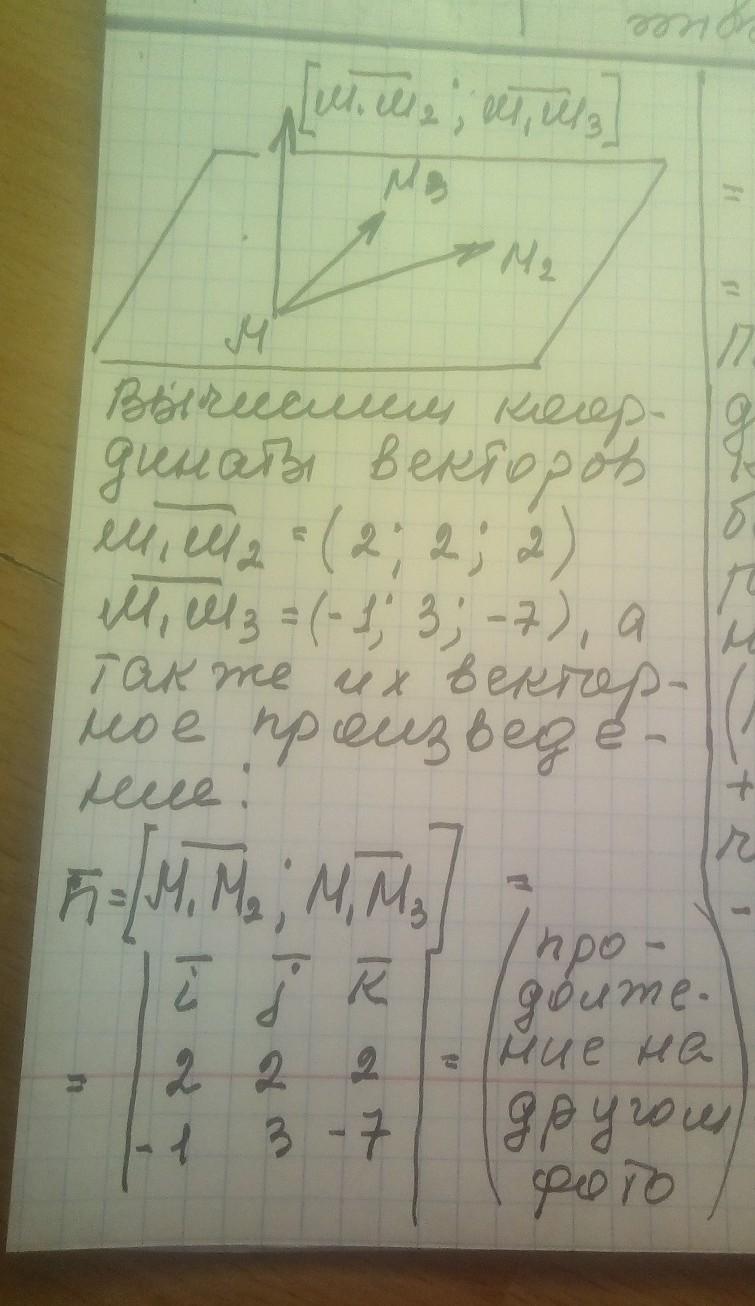 [M₁M₂; M₁M₃]
M₃
M₂
M
Вычислим коор-
динаты векторов
M₁M₂ = (2; 2; 2)
M₁M₃ = (-1; 3; -7), а
также их вектор-
ное произведе-
ние:
n̅ = [M₁M₂; M₁M₃] =
i̅ j̅ k̅
= 2 2 2 =
-1 3 -7
(про-
долже-
ние на
другом
фото)